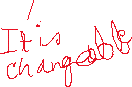 It is
changeable